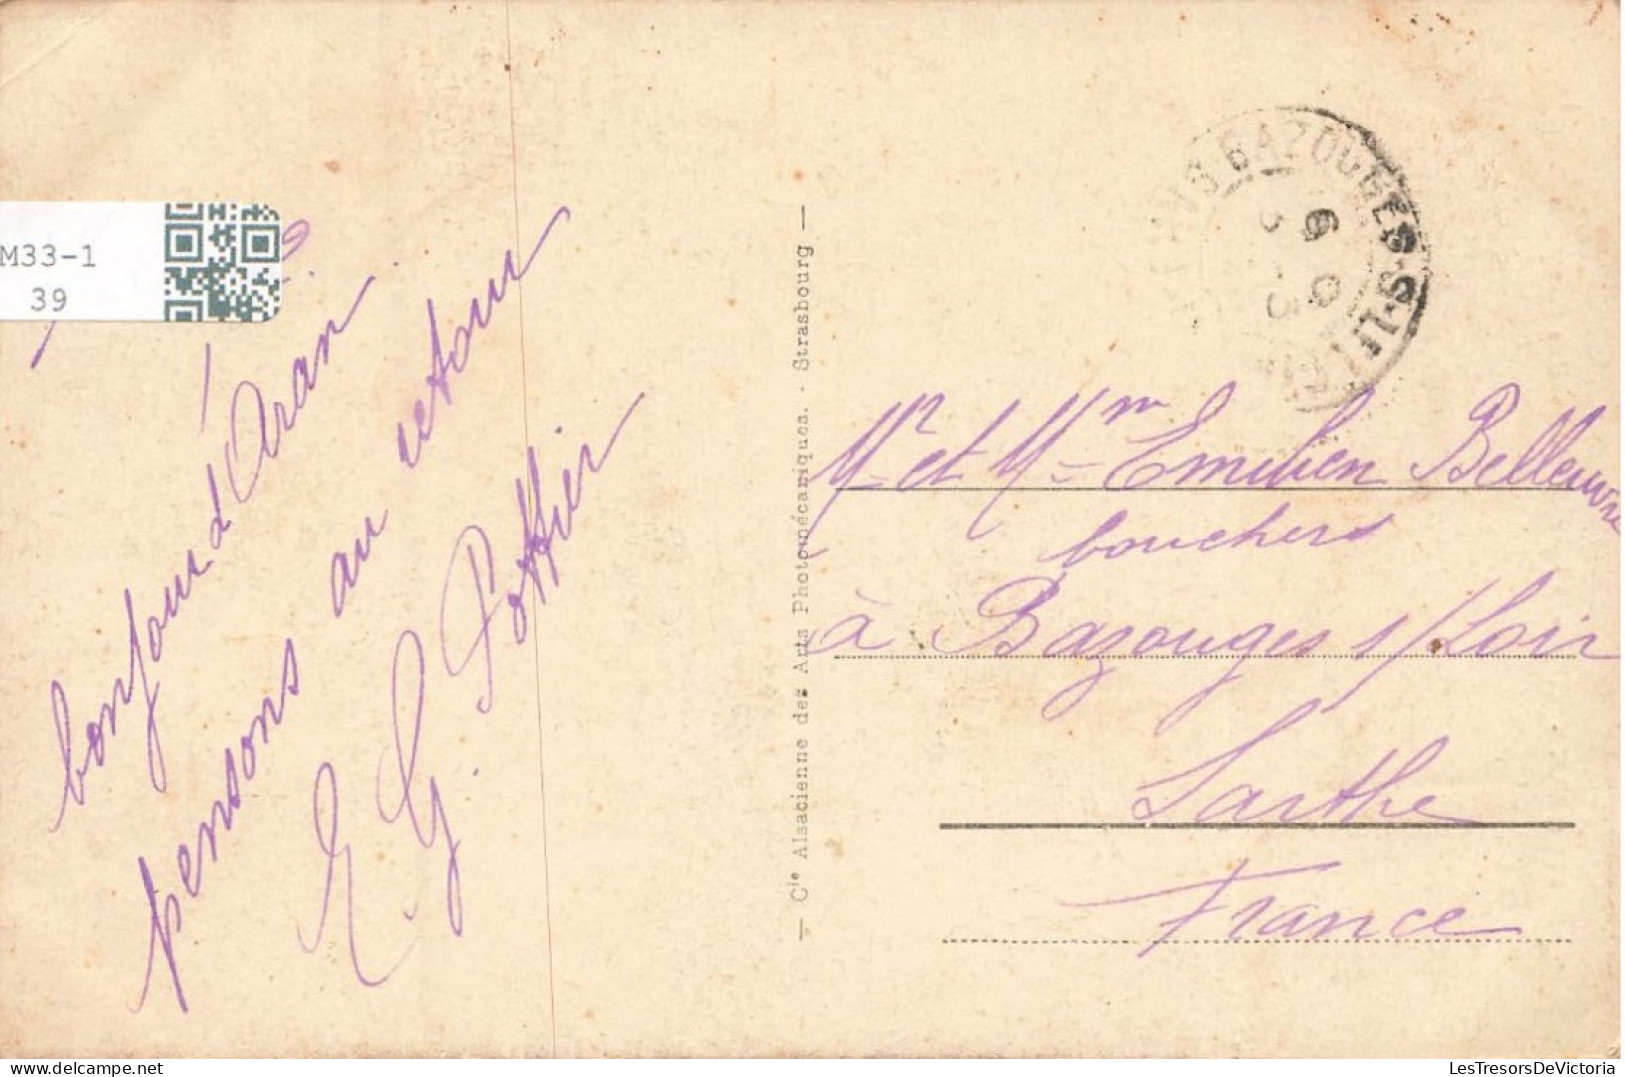 M33-1
39
bonjour d'Oran
pensons au retour
E. G. Pottier
— Cie Alsacienne des Arts Photomécaniques. - Strasbourg —
BAZOUGES-S-LE-LOIR
Mr et Mme Emilien Bellœuvre
bouchers
à Bazouges s/Loir
Sarthe
France
LesTresorsDeVictoria